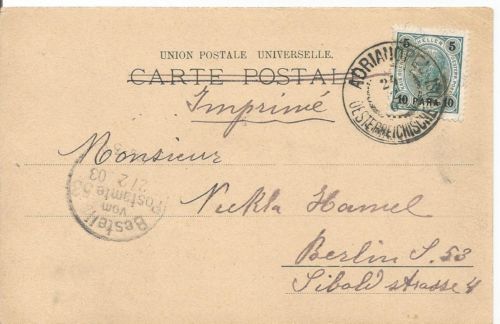 UNION POSTALE UNIVERSELLE.
CARTE POSTALE
Imprimé
Monsieur
Nickla Hamel
Berlin S. 53
Sibold strasse 4
5 HELLER 5
10 PARA 10
ADRIANOPEL
OESTERREICHISCHE
Bestellt
vom
Postamte 53
2/2 03